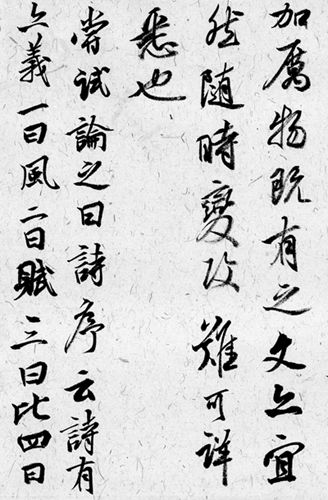 加厲物既有之文亦宜
然随時變改難可詳
悉也
嘗試論之曰詩序云詩有
六義一曰風二曰賦三曰比四曰